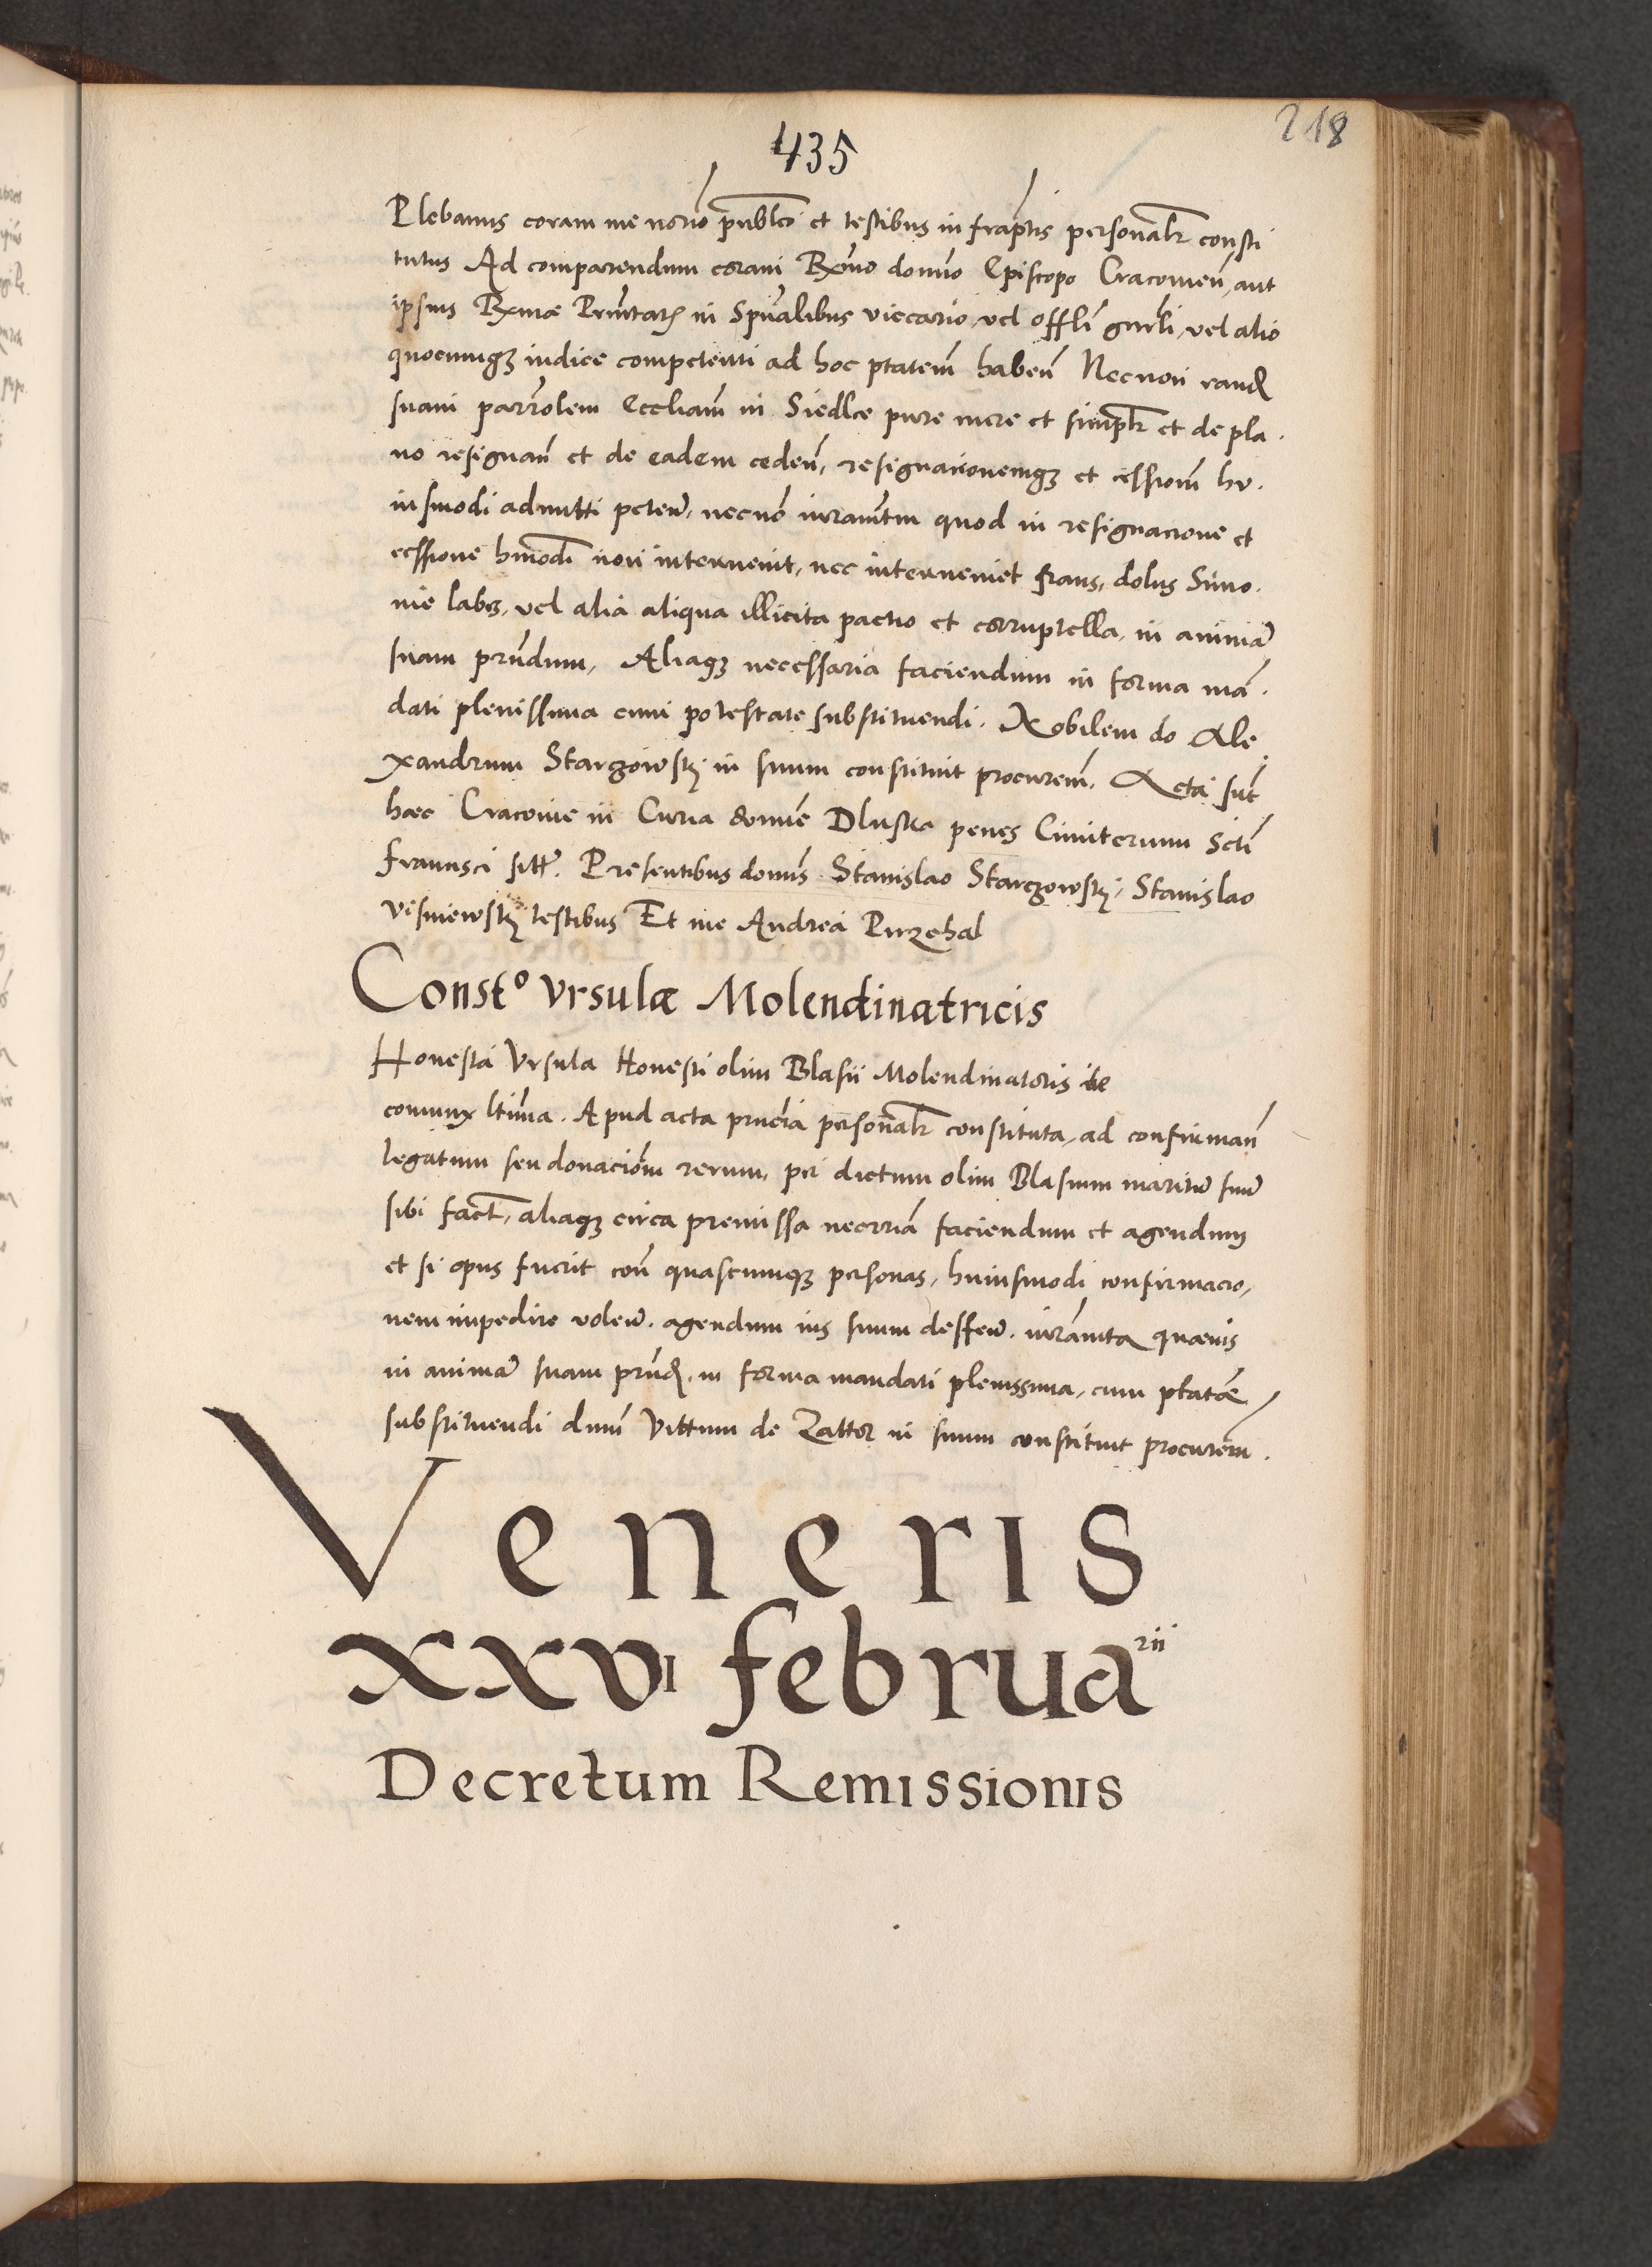 435
218
Plebanus coram me nōrio pūblco et testibus infraptis personalr consti
tutus Ad comparendum coram Rxmo domno Episcopo Cracovien, aut
ipsius Rxmæ Prntatis in Spūalibus viccario, vel offlī gnrli, vel alio
quocumqz iudice competenti ad hoc ptatem haben Necnon
suam parrolem Eccliam in Siedlce pure mere et simplr et de pla.
no resignan et de eadem ceden, resignacionemqz et cessiom hu.
iusmodi admitti peten, necnō iuramtum quod in resignacione et
cessione hmodi non intervenit, nec interveniet fraus, dolus Simo.
nie labes, vel alia aliqua illicita pactio et corruptella, in animā
suam prndum, Aliaqz necessaria faciendum in forma mā.
dati plenissima cum potestate substituendi. Nobilem do Ale
xandrum Starczowskj in suum constituit procurem. Acta sūt
hæc Cracovie in Curia domūs Dluska penes Cimiterium Scti
francisci sitt. Presentibus domis Stanislao Starczowskj, Stanislao
Visniewskj testibus Et me Andrea Przechal
Constº Vrsulæ Molendinatricis
Honesta Vrsula Honesti olim Blasii Molendinatoris
coniunx ltima. Apud acta prncia personalr constituta, ad confirman
legatum seu donaciom rerum, per dictum olim Blasium maritū suū
sibi fact, aliaqz circa premissa necrria faciendum et agendum
et si opus fuerit con quascumqz personas, huiusmodi confirmacio,
nem impedire volen. agendum ius suum deffen. iuramta quævis
in animā suam prnd. in forma mandati plenissima, cum ptate
substituendi dnm Vittum de Zattor in suum constituit procurem.
Veneris
xxvi februarii
Decretum Remissionis